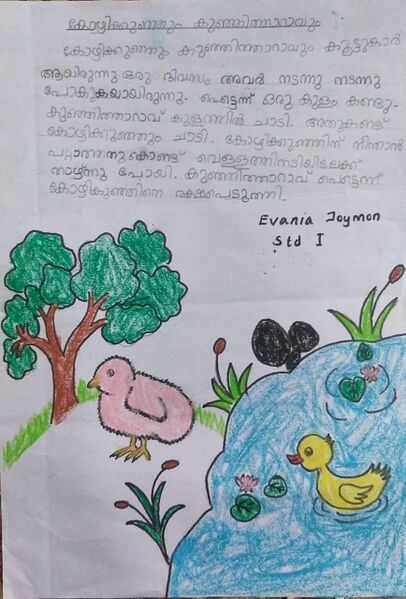 കോഴിക്കുഞ്ഞും കുഞ്ഞിത്താറാവും
കോഴിക്കുഞ്ഞും കുഞ്ഞിത്താറാവും കൂട്ടുകാർ
ആയിരുന്നു ഒരു ദിവസം അവർ നടന്നു നടന്നു
പോകുകയായിരുന്നു. പെട്ടെന്ന് ഒരു കുളം കണ്ടു.
കുഞ്ഞിത്താറാവ് കുളത്തിൽ ചാടി. അതുകണ്ട്
കോഴിക്കുഞ്ഞും ചാടി. കോഴിക്കുഞ്ഞിന് നീന്താൻ
പറ്റാത്തതു കൊണ്ട് വെള്ളത്തിനടിയിലേക്ക്
താഴ്ന്നു പോയി. കുഞ്ഞിത്താറാവ് പെട്ടെന്ന്
കോഴികുഞ്ഞിനെ രക്ഷപെടുത്തി.
Evania Joymon
Std I